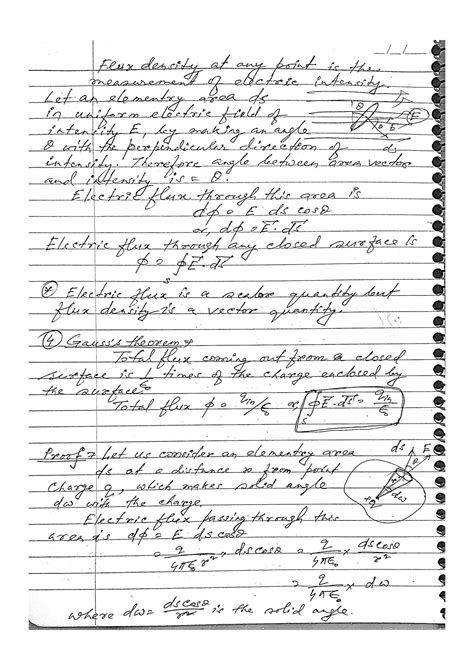 _/_/_
Flux density at any point is the
measurement of electric intensity.
Let an elementry area ds
in uniform electric field of
intensity E, by making an angle
θ with the perpendicular direction of
intensity. Therefore angle between area vector
and intensity is = θ.
Electric flux through this area is
dφ = E ds cosθ
or, dφ = E⃗. ds⃗
Electric flux through any closed surface is
φ = ∮ₛ E⃗. ds⃗
Electric flux is a scalar quantity but
flux density is a vector quantity.
④ Gauss's theorem →
Total flux coming out from a closed
surface is 1/ε₀ times of the charge enclosed by
the surface
Total flux φ = qin/ε₀ or ∮ₛ E⃗. ds⃗ = qin/ε₀
Proof → Let us consider an elementry area
ds at a distance r from point
charge q, which makes solid angle
dw with the charge.
Electric flux passing through this
area is dφ = E ds cosθ
= q/4πε₀r² × ds cosθ = q/4πε₀ × ds cosθ/r²
= q/4πε₀ × dw
where dw = ds cosθ/r² is the solid angle.
θ
E
ds
ds
E
θ
r
dw
+q